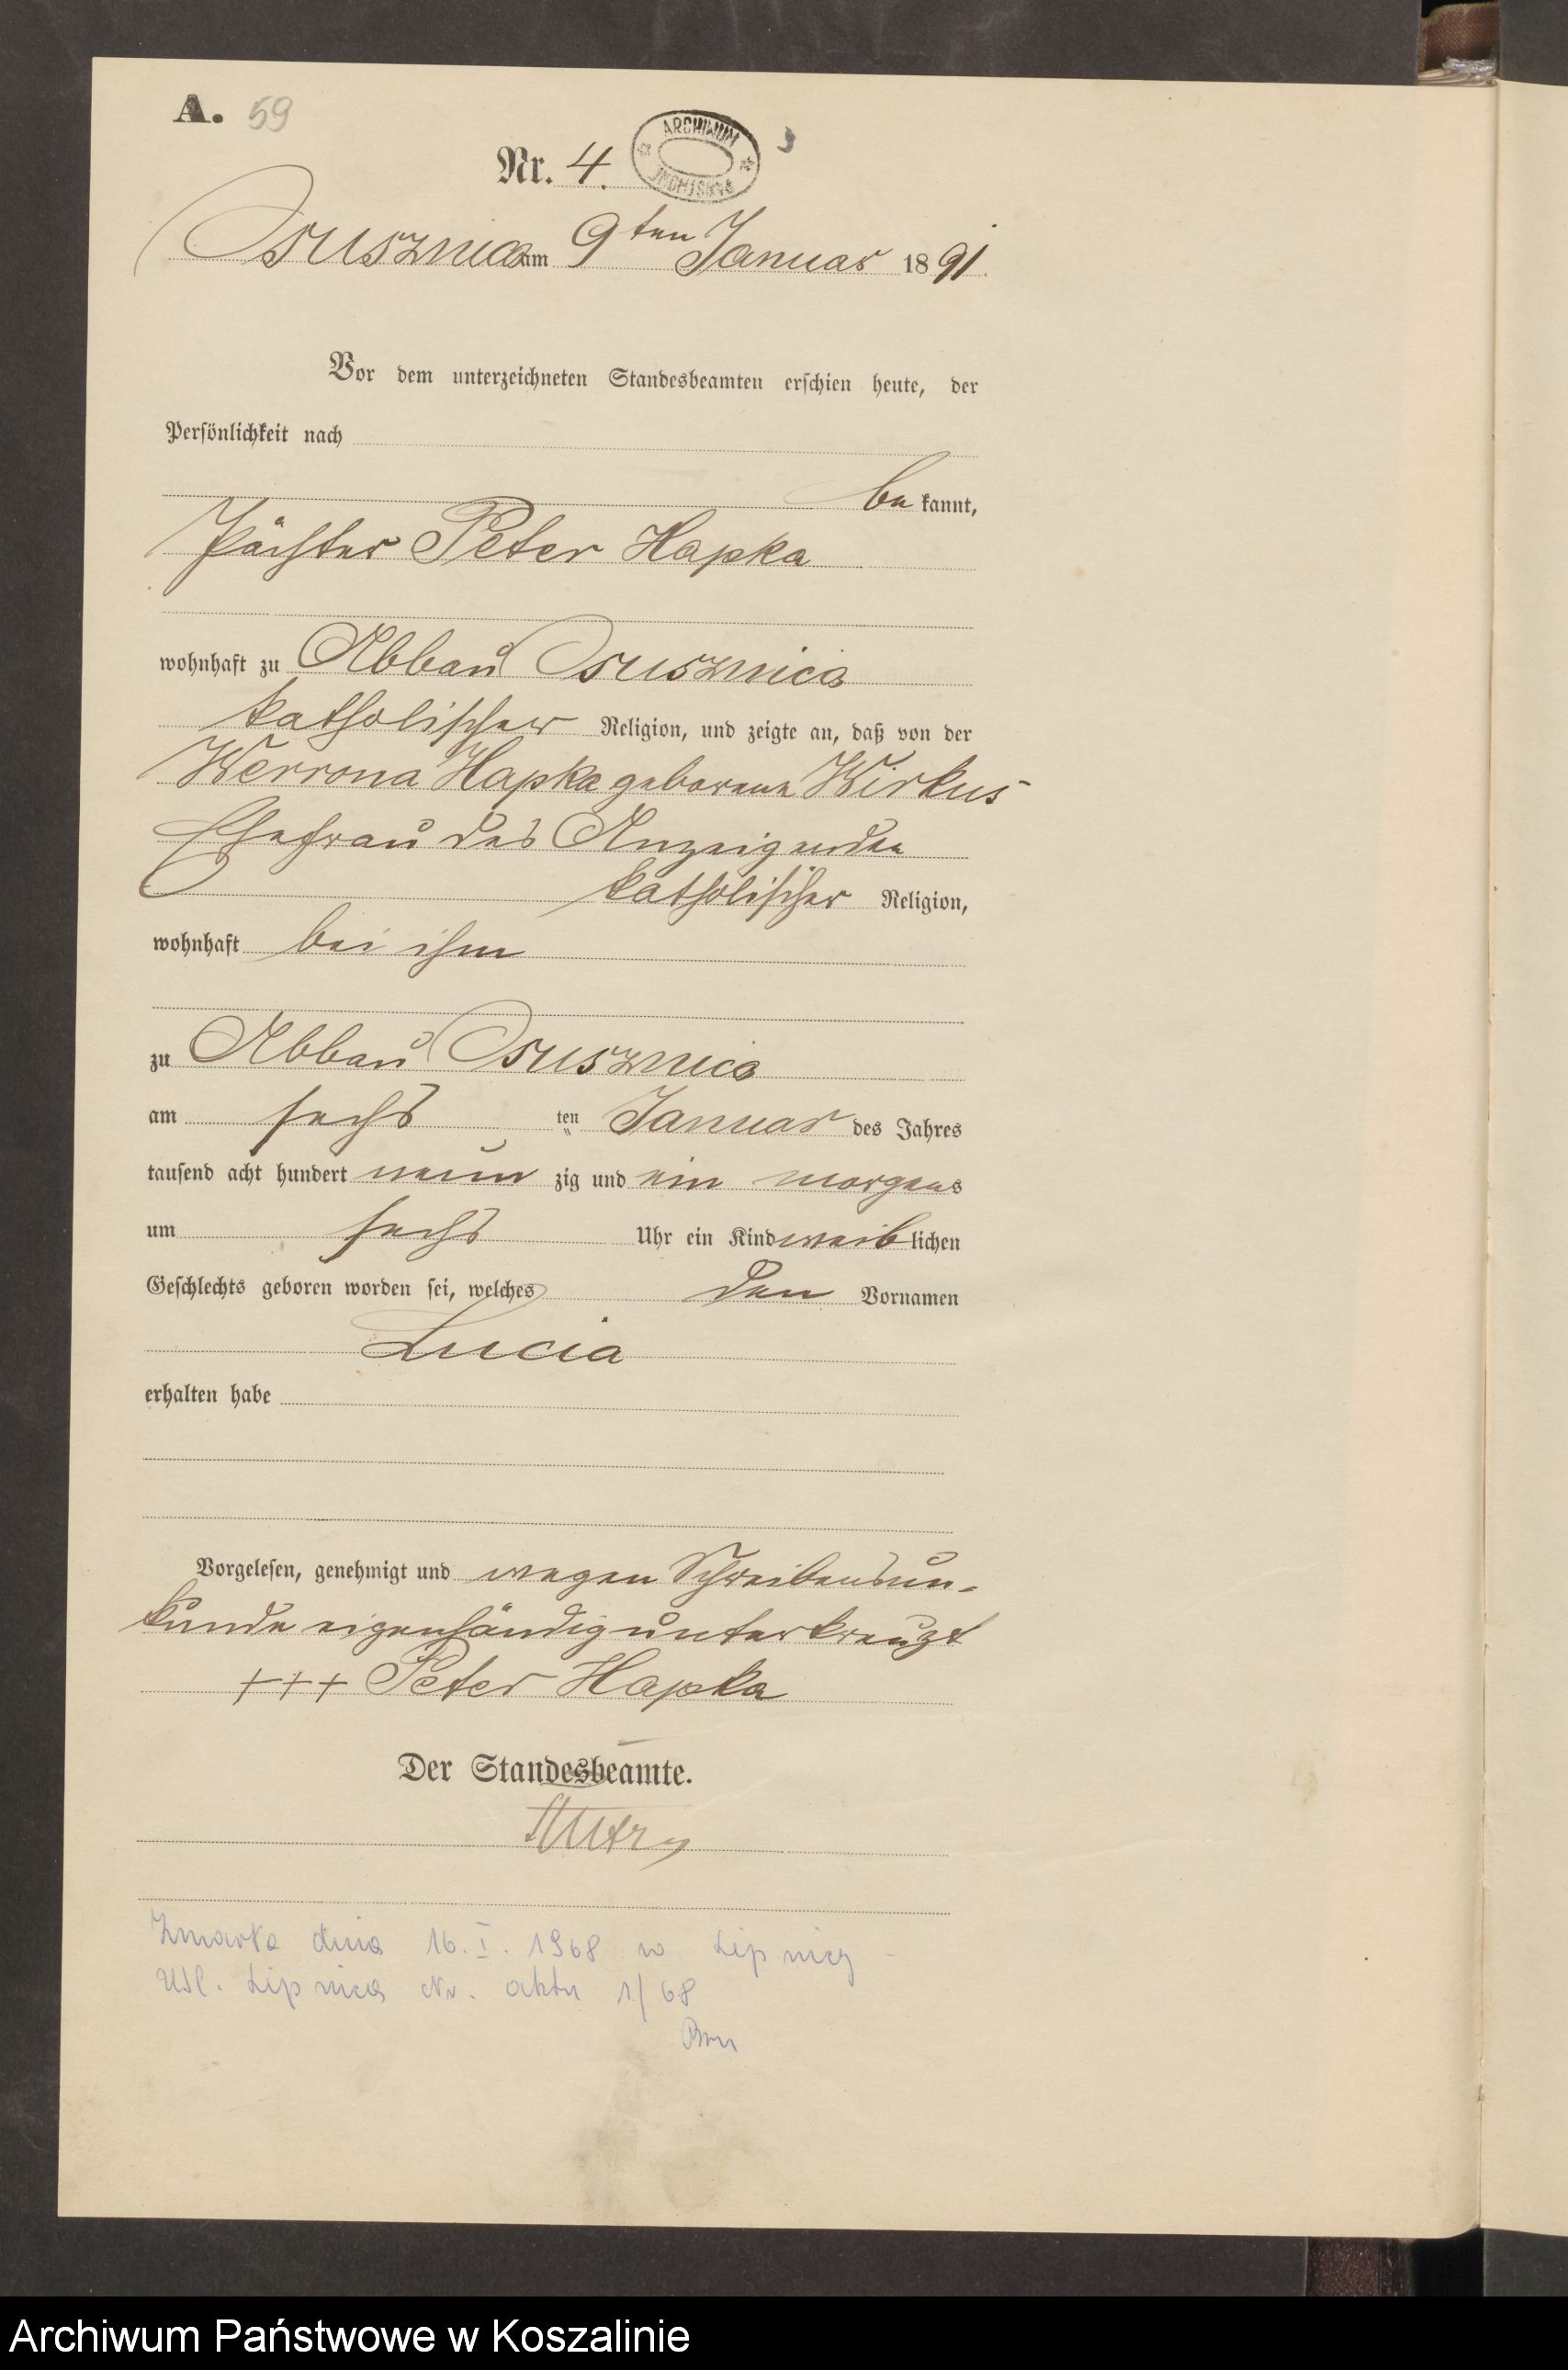 A. 59
Nr. 4.
ARCHIWUM
Osusznica am 9ten Januar 1891.
Vor dem unterzeichneten Standesbeamten erschien heute, der
Persönlichkeit nach
be kannt,
Pächter Peter Hapka
wohnhaft zu Abbau Osusznica
katholischer Religion, und zeigte an, daß von der
Werrona Hapka geborene Wirkus
Ehefrau des Anzeigenden
katholischer Religion,
wohnhaft bei ihm
zu Abbau Osusznica
am sechs ten Januar des Jahres
tausend acht hundert neun zig und ein morgens
um sechs Uhr ein Kind weiblichen
Geschlechts geboren worden sei, welches den Vornamen
Lucia
erhalten habe
Vorgelesen, genehmigt und wegen Schreibensun-
kunde eigenhändig unterkreuzt
+++ Peter Hapka
Der Standesbeamte.
Zmarła dnia 16. I. 1968 w Lipnicy
USC. Lipnica Nr. aktu 1/68
Archiwum Państwowe w Koszalinie